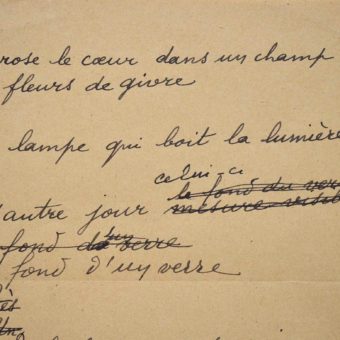 rose le cœur dans un champ
fleurs de givre
lampe qui boit la lumière
celui-ci
le fond du ver
'autre jour mesure
fond d'un verre
fond d'un verre